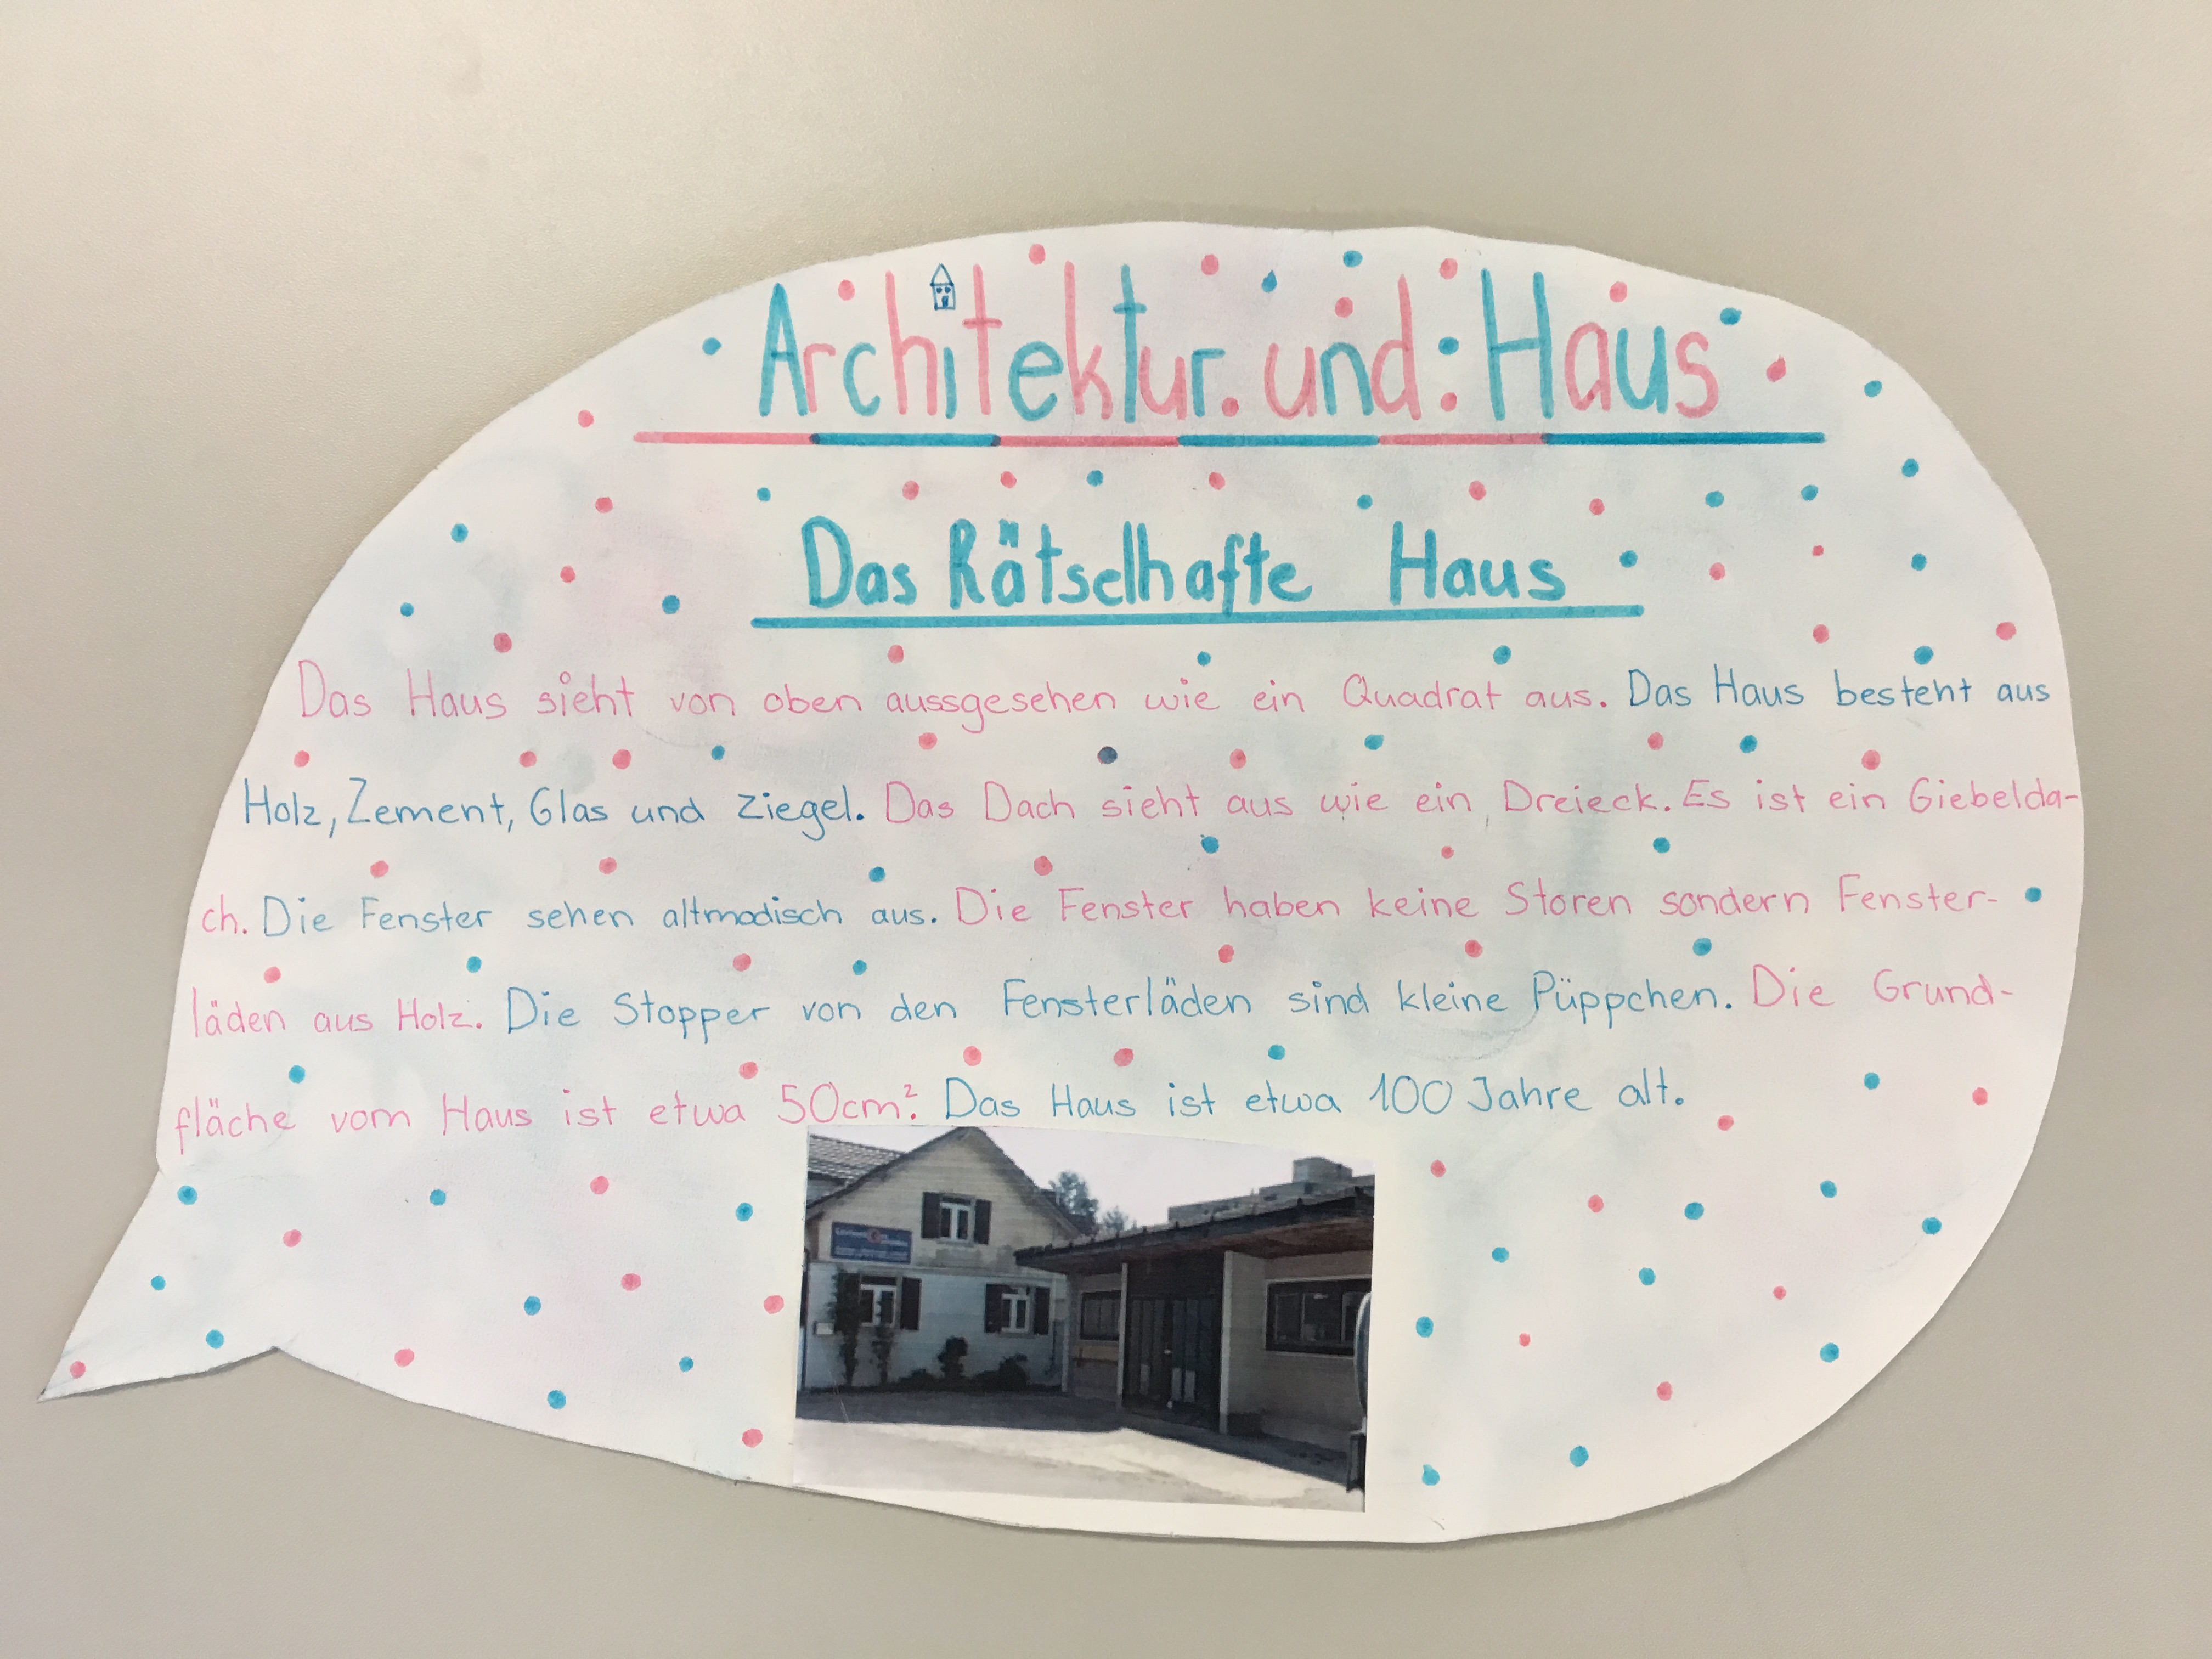 Architektur und Haus
Das Rätselhafte Haus
Das Haus sieht von oben aussgesehen wie ein Quadrat aus. Das Haus besteht aus
Holz, Zement, Glas und Ziegel. Das Dach sieht aus wie ein Dreieck. Es ist ein Giebelda-
ch. Die Fenster sehen altmodisch aus. Die Fenster haben keine Storen sondern Fenster-
läden aus Holz. Die Stopper von den Fensterläden sind kleine Püppchen. Die Grund-
fläche vom Haus ist etwa 50cm². Das Haus ist etwa 100 Jahre alt.